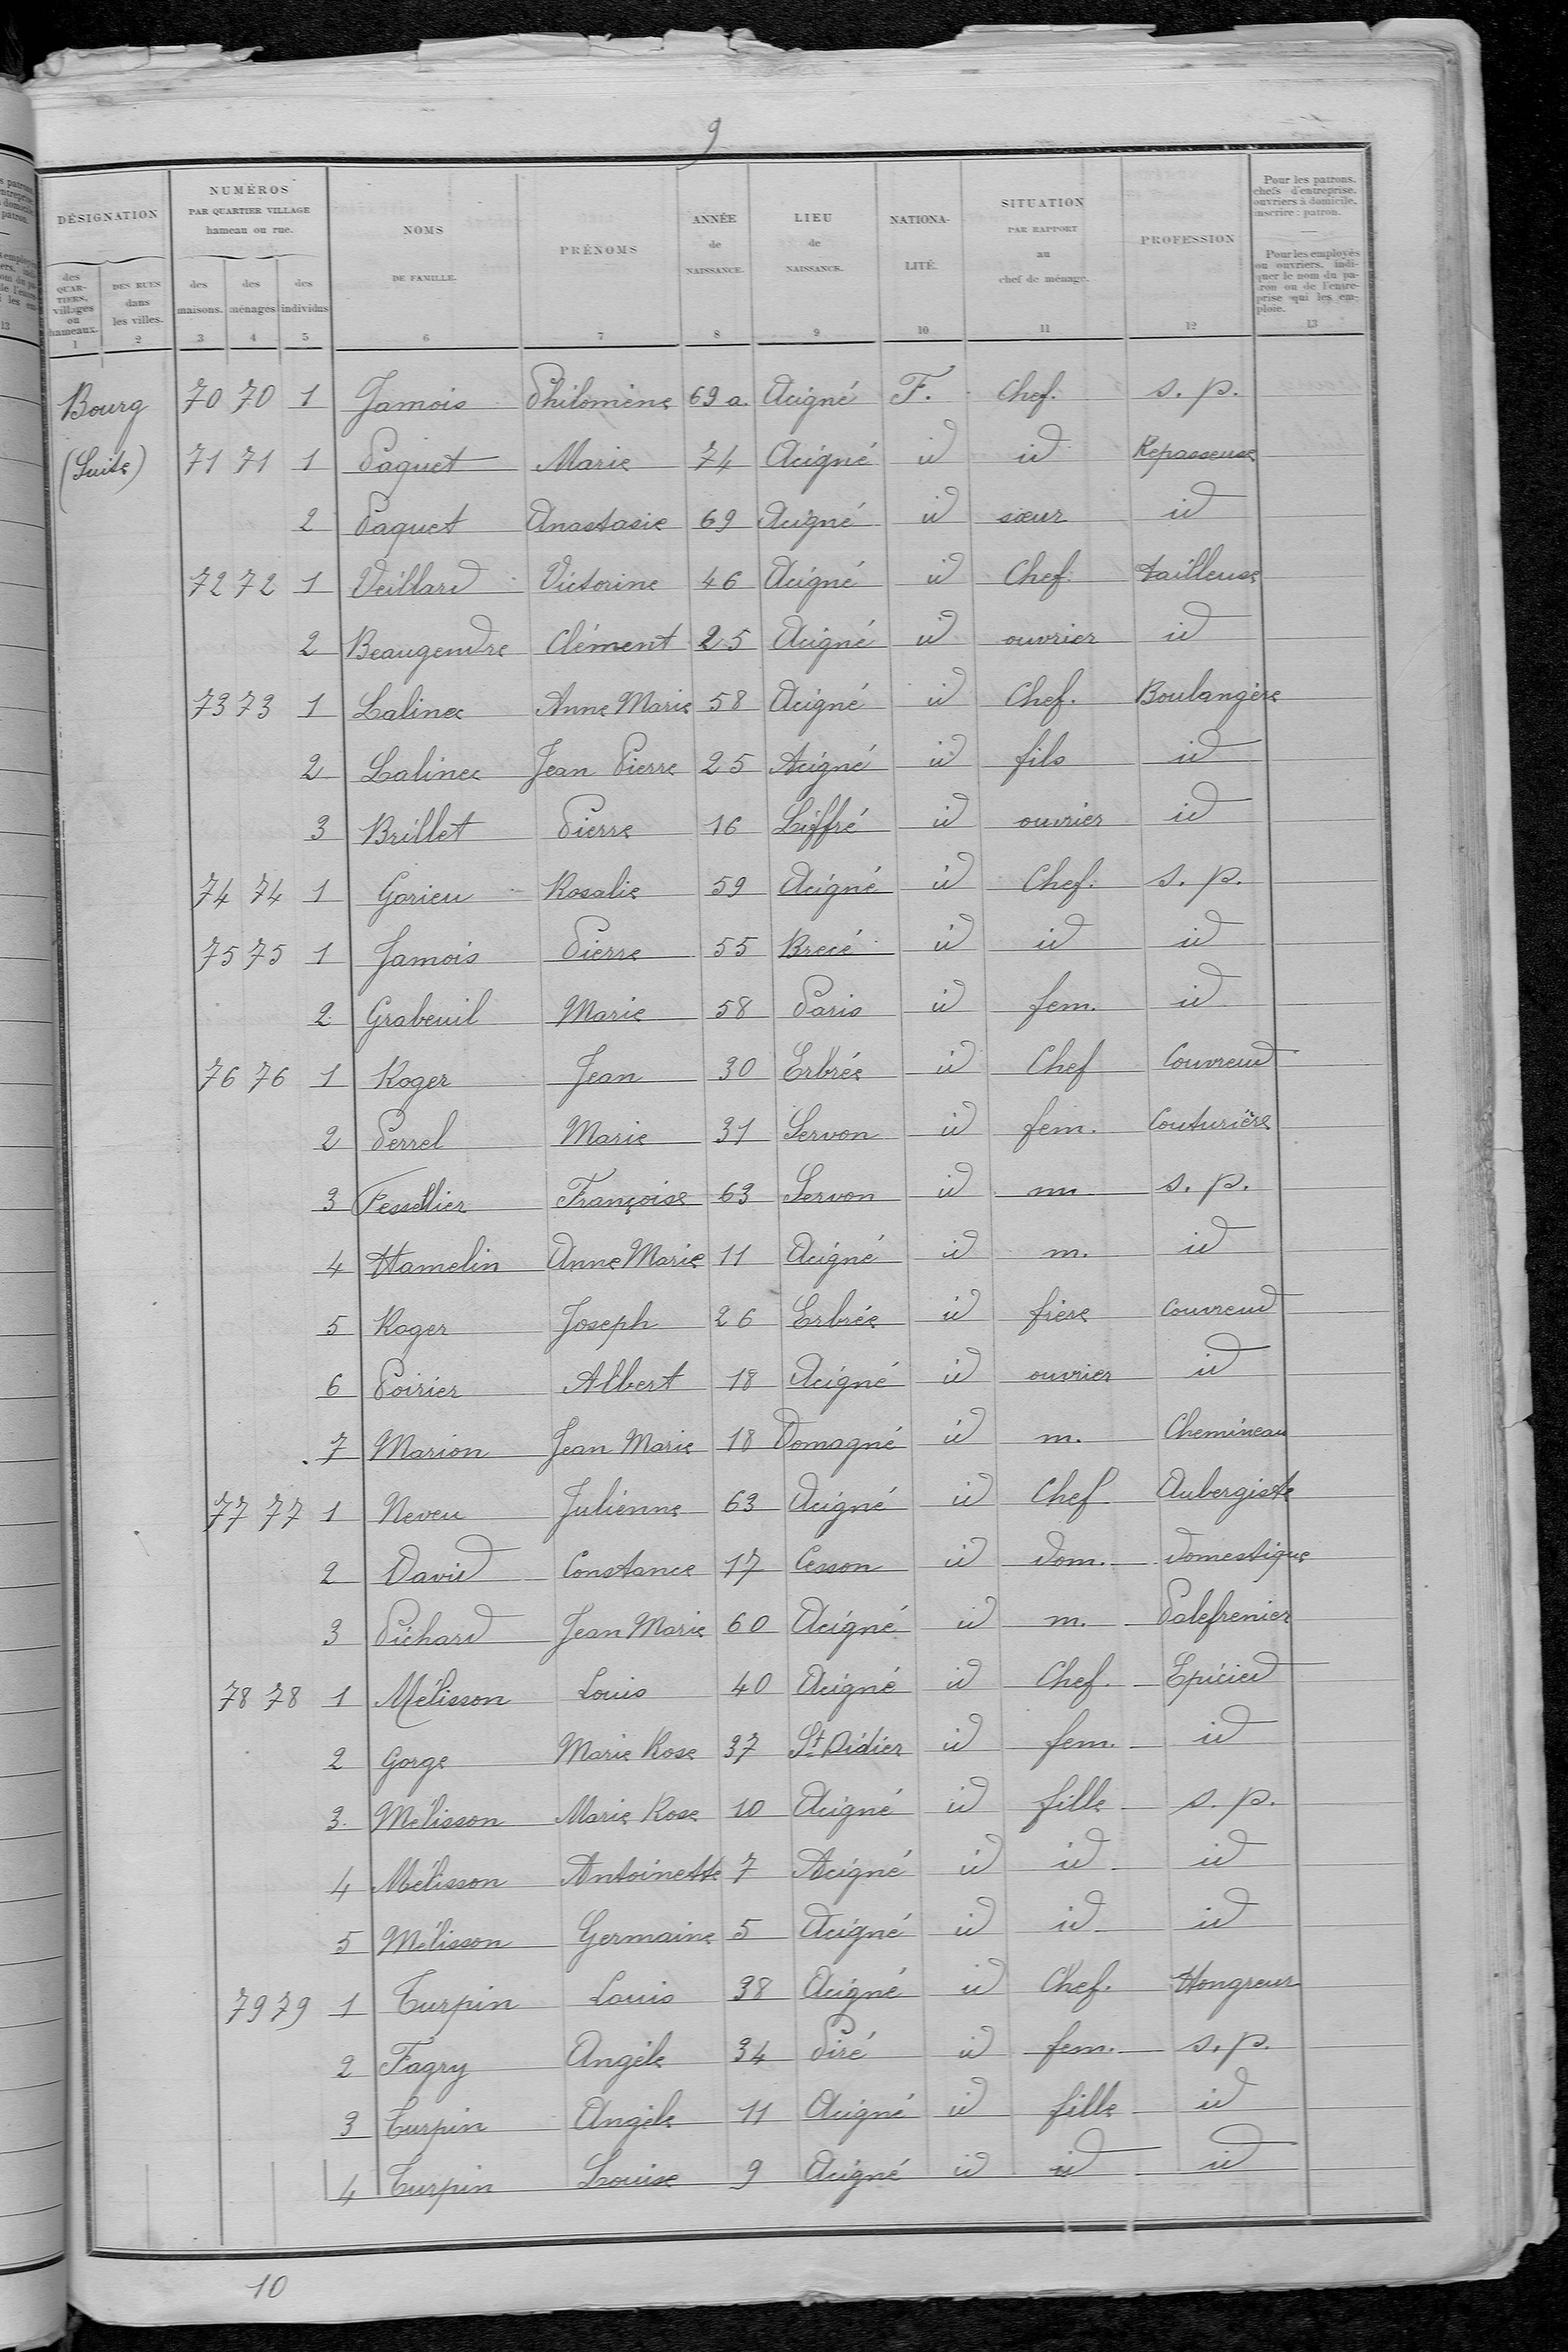 9
DÉSIGNATION
des QUARTIERS, villages ou hameaux. 1
DES RUES dans les villes. 2
NUMÉROS PAR QUARTIER VILLAGE hameau ou rue.
des maisons. 3
des ménages 4
des individus 5
NOMS DE FAMILLE. 6
PRÉNOMS 7
ANNÉE de NAISSANCE. 8
LIEU de NAISSANCE. 9
NATIONALITÉ. 10
SITUATION PAR RAPPORT au chef de ménage. 11
PROFESSION 12
Pour les patrons, chefs d'entreprise, ouvriers à domicile, inscrire : patron.
Pour les employés ou ouvriers, indiquer le nom du patron ou de l'entreprise qui les emploie. 13
Bourg 70 70 1 Jamois Philomène 69 a. Acigné F. Chef. s. p.
(Suite) 71 71 1 Paquet Marie 74 Acigné id id Repasseuse
2 Paquet Anastasie 69 Acigné id sœur id
72 72 1 Veillard Victorine 46 Acigné id Chef tailleuse
2 Beaugendre Clément 25 Acigné id ouvrier id
73 73 1 Lalinec Anne Marie 58 Acigné id Chef. Boulangère
2 Lalinec Jean Pierre 25 Acigné id fils id
3 Brillet Pierre 16 Liffré id ouvrier id
74 74 1 Gorieu Rosalie 59 Acigné id Chef. s. p.
75 75 1 Jamois Pierre 55 Brecé id id id
2 Grabeuil Marie 58 Paris id fem. id
76 76 1 Roger Jean 30 Erbrée id Chef Couvreur
2 Perrel Marie 31 Servon id fem. Couturière
3 Tessellier Françoise 63 Servon id m s. p.
4 Hamelin Anne Marie 11 Acigné id m. id
5 Roger Joseph 26 Erbrée id frère Couvreur
6 Poirier Albert 18 Acigné id ouvrier id
7 Marion Jean Marie 18 Domagné id m. Chemineau
77 77 1 Neveu Julienne 63 Acigné id Chef Aubergiste
2 David Constance 17 Cesson id dom. domestique
3 Pichard Jean Marie 60 Acigné id m. Palefrenier
78 78 1 Mélisson Louis 40 Acigné id Chef. Epicier
2 Gorge Marie Rose 37 St Didier id fem. id
3. Mélisson Marie Rose 10 Acigné id fille s. p.
4 Mélisson Antoinette 7 Acigné id id id
5 Mélisson Germaine 5 Acigné id id id
79 79 1 Turpin Louis 38 Acigné id Chef. Hongreur
2 Fagry Angèle 34 Piré id fem. s. p.
3 Turpin Angèle 11 Acigné id fille id
4 Turpin Louise 9 Acigné id id id
10